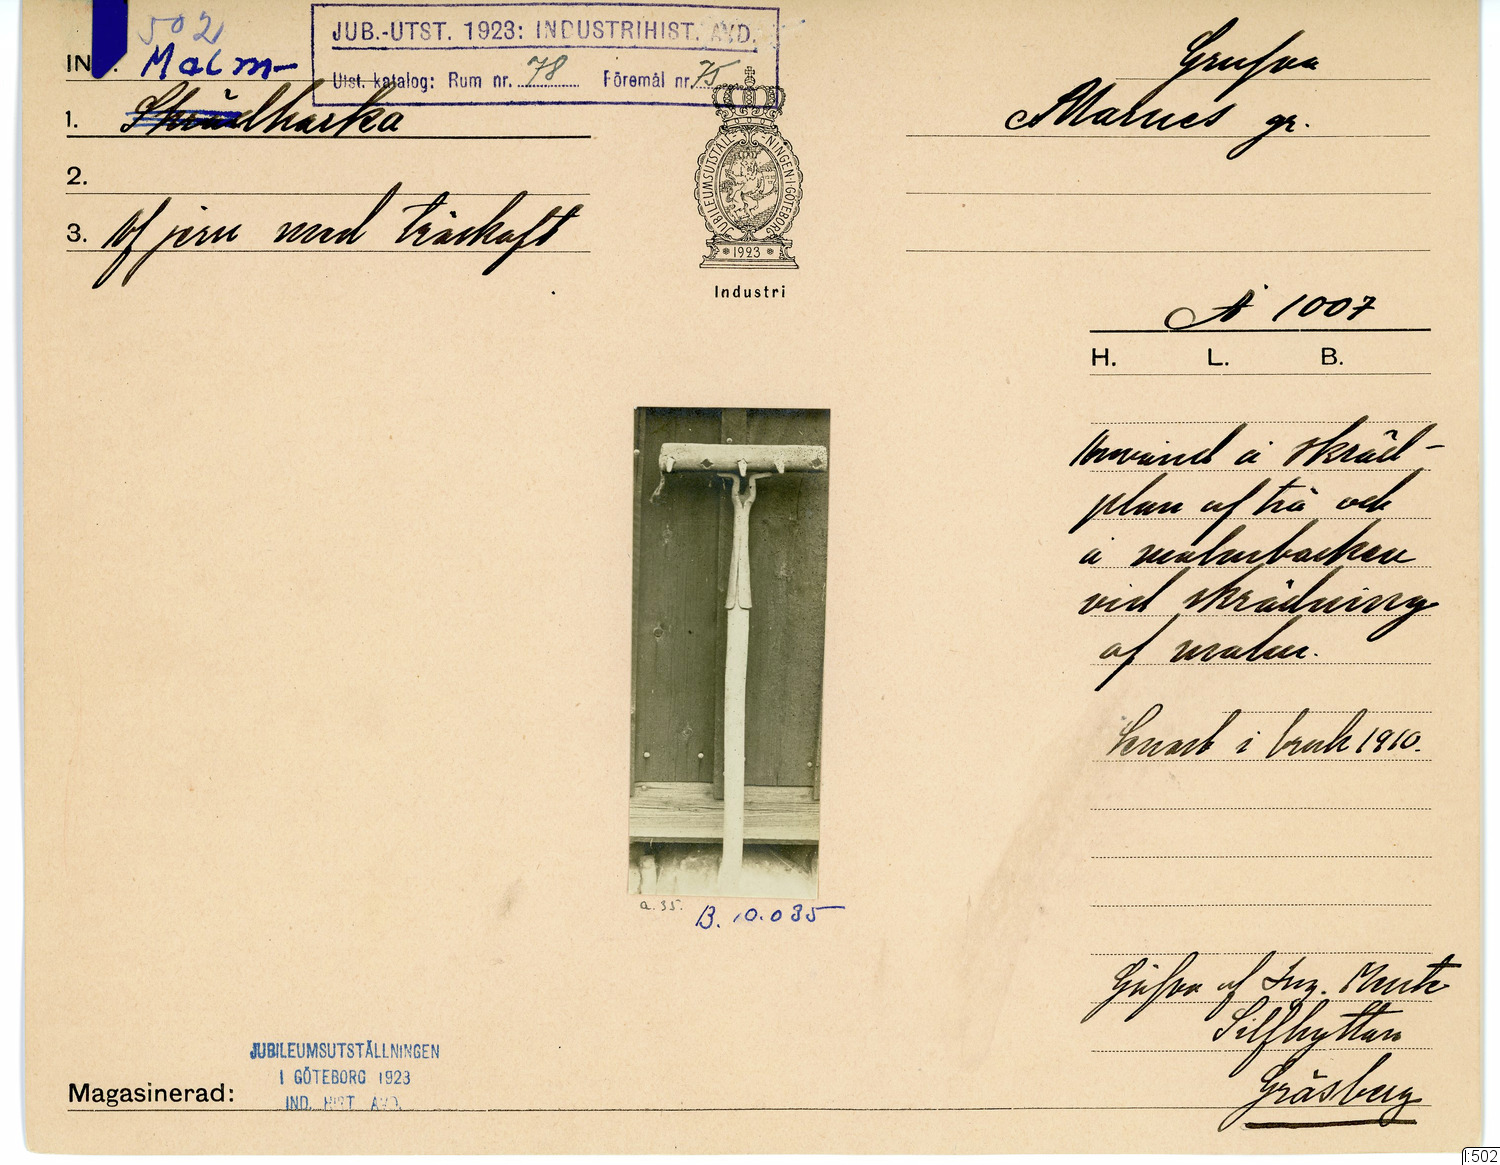 502
JUB.-UTST. 1923: INDUSTRIHIST. AVD.
Utst. katalog: Rum nr. 78 Föremål nr. 75
IN
Malm-
1. Skrädharka
2.
3. Af jern med träskaft
JUBILEUMSUTSTÄLLNINGEN I GÖTEBORG
1923
Industri
Grufva
Marnes gr.
A 1007
H. L. B.
Använd å skräd-
plan af trä och
å malmbacken
vid skrädning
af malm.
Senast i bruk 1910.
a. 35.
B. 10.035
Gåfva af Ing. Munk
Silfhyttan
Gräsberg
JUBILEUMSUTSTÄLLNINGEN
I GÖTEBORG 1923
IND. HIST. AVD.
Magasinerad:
I:502